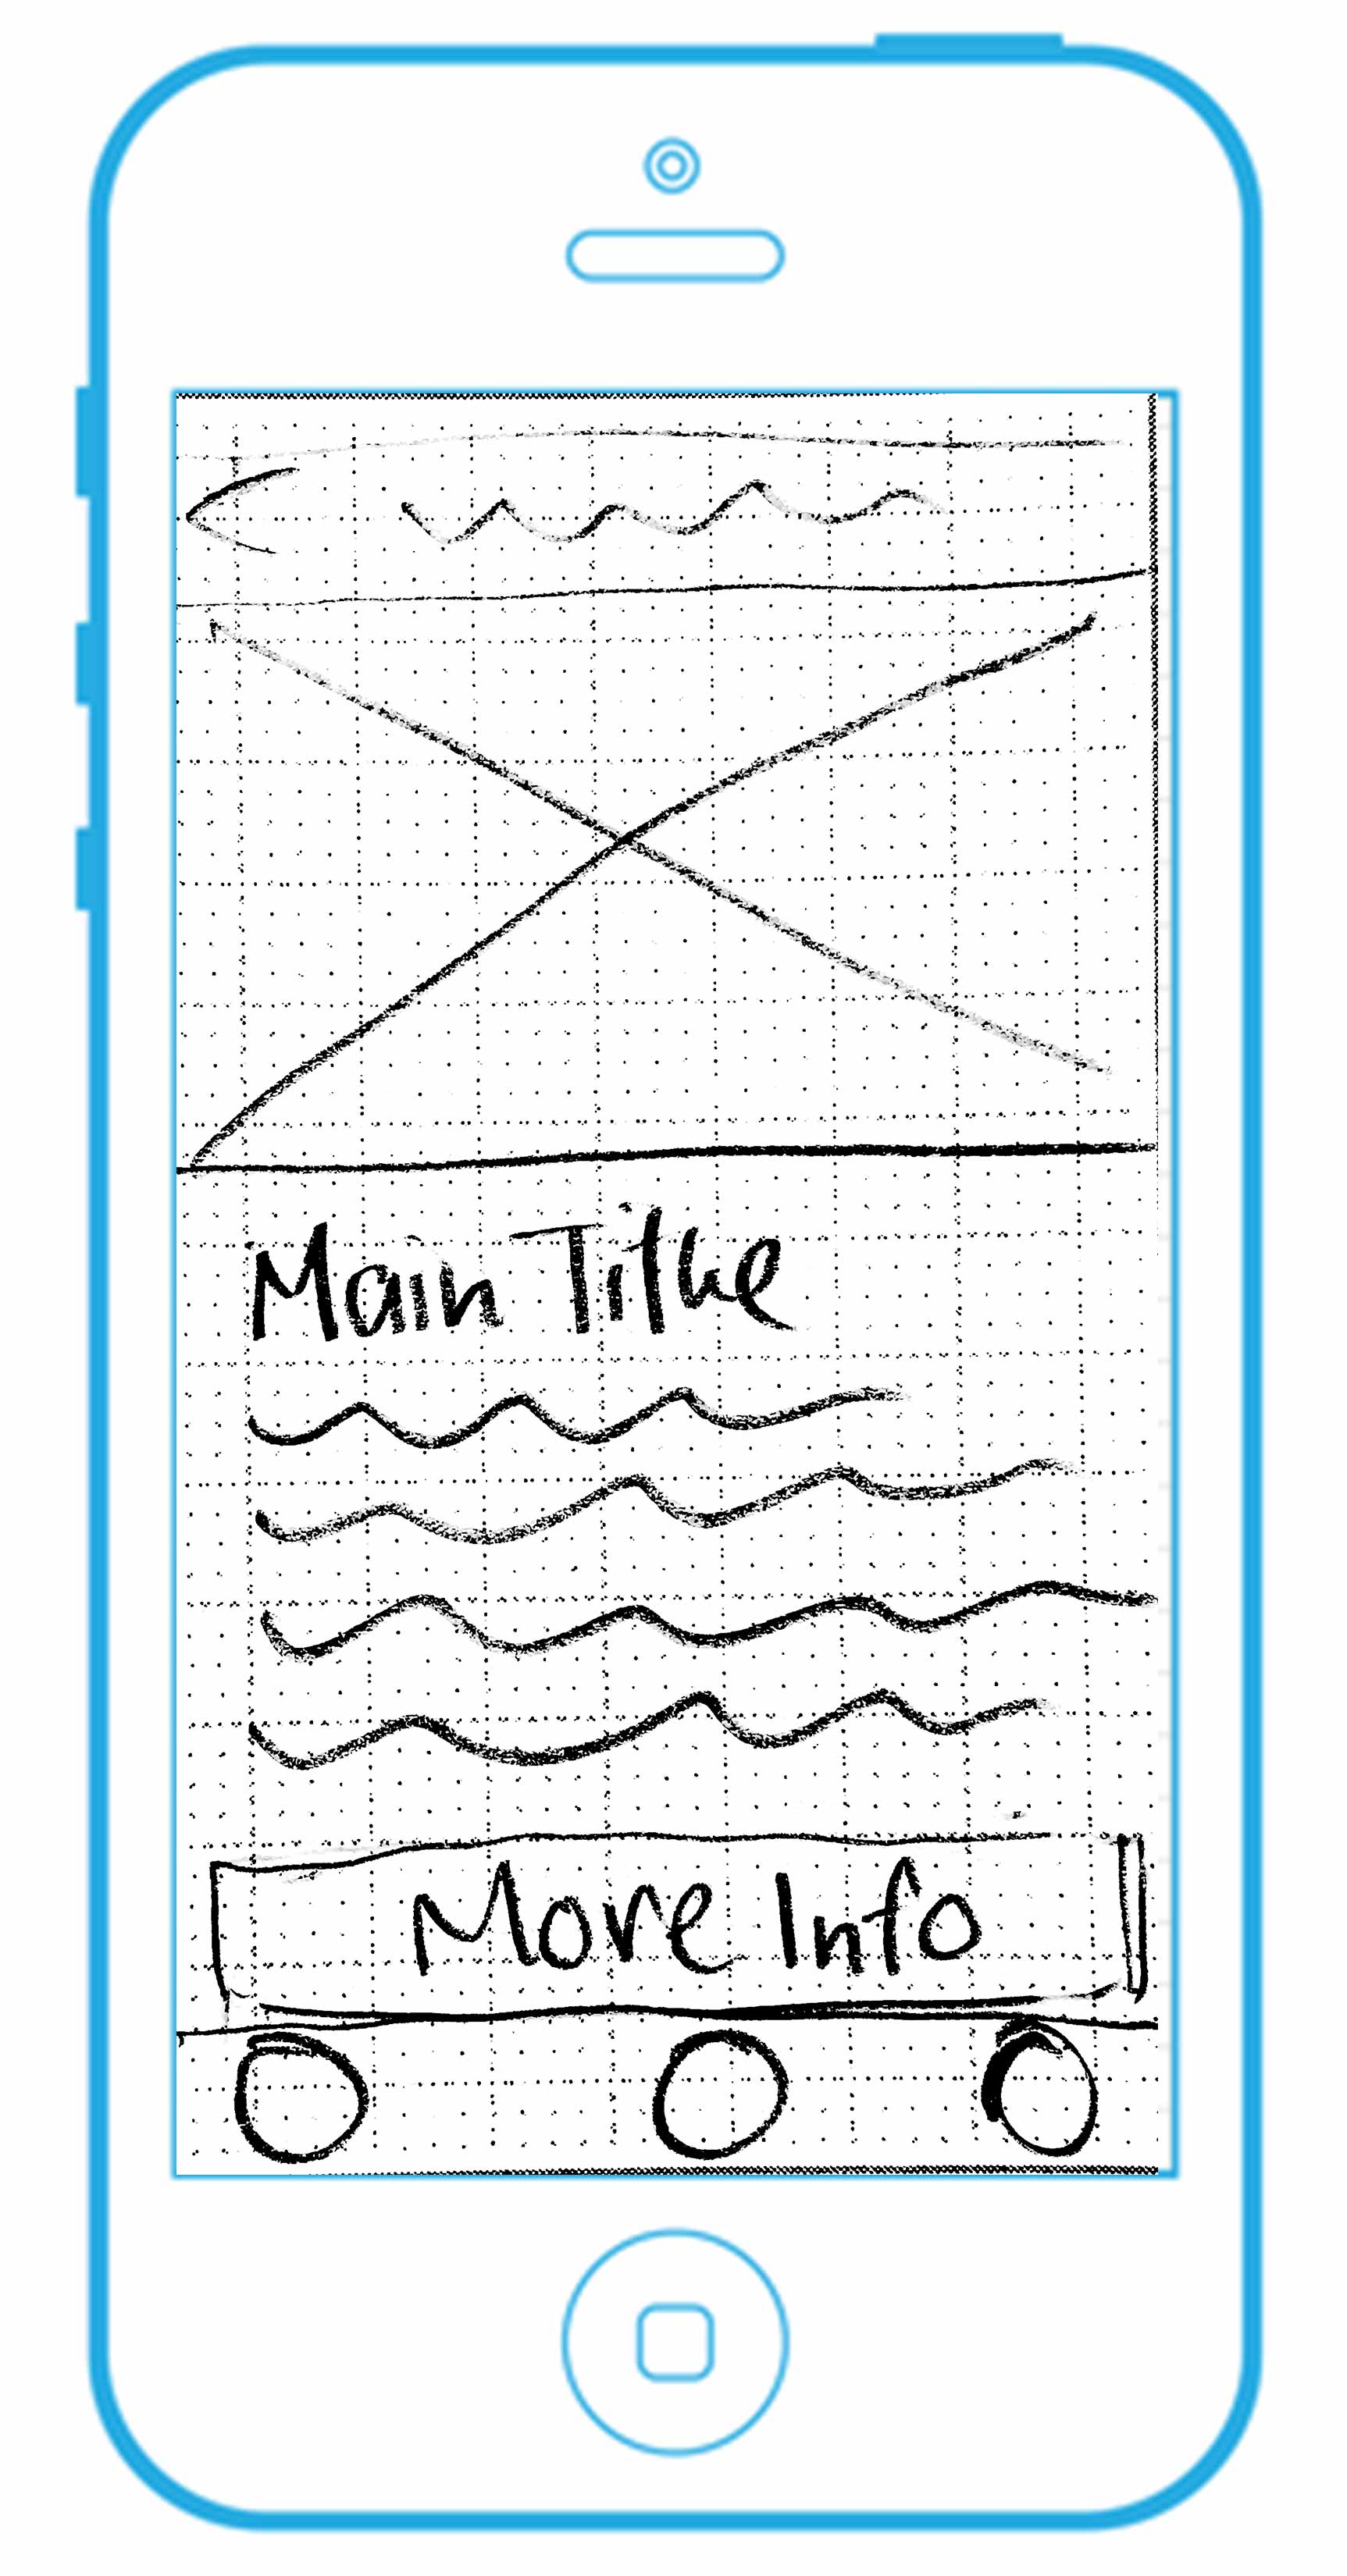 Main Title
More Info